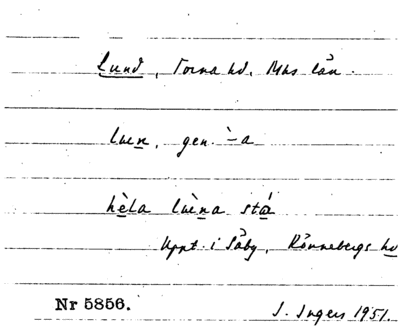 Lund, Torna hd, Mhs län.
luen, gen. `-a
hèla luèna stá
Uppt. i Säby, Rönnebergs hd
Nr 5856. I. Ingers 1951.